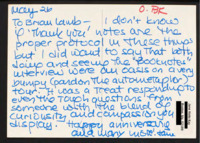 May 26
O. BK
To Brian Lamb - I don't know
if 'thank you' notes are the
proper protocol in these things
but I did want to say that both
doing and seeing the "Booknotes"
interview were an oasis on a very
bumpy (pardon the automotive joke)
tour. It was a treat responding to
even the tough questions from
someone with the blend of
curiousity and compassion you
display. Happy anniversary
and many more.